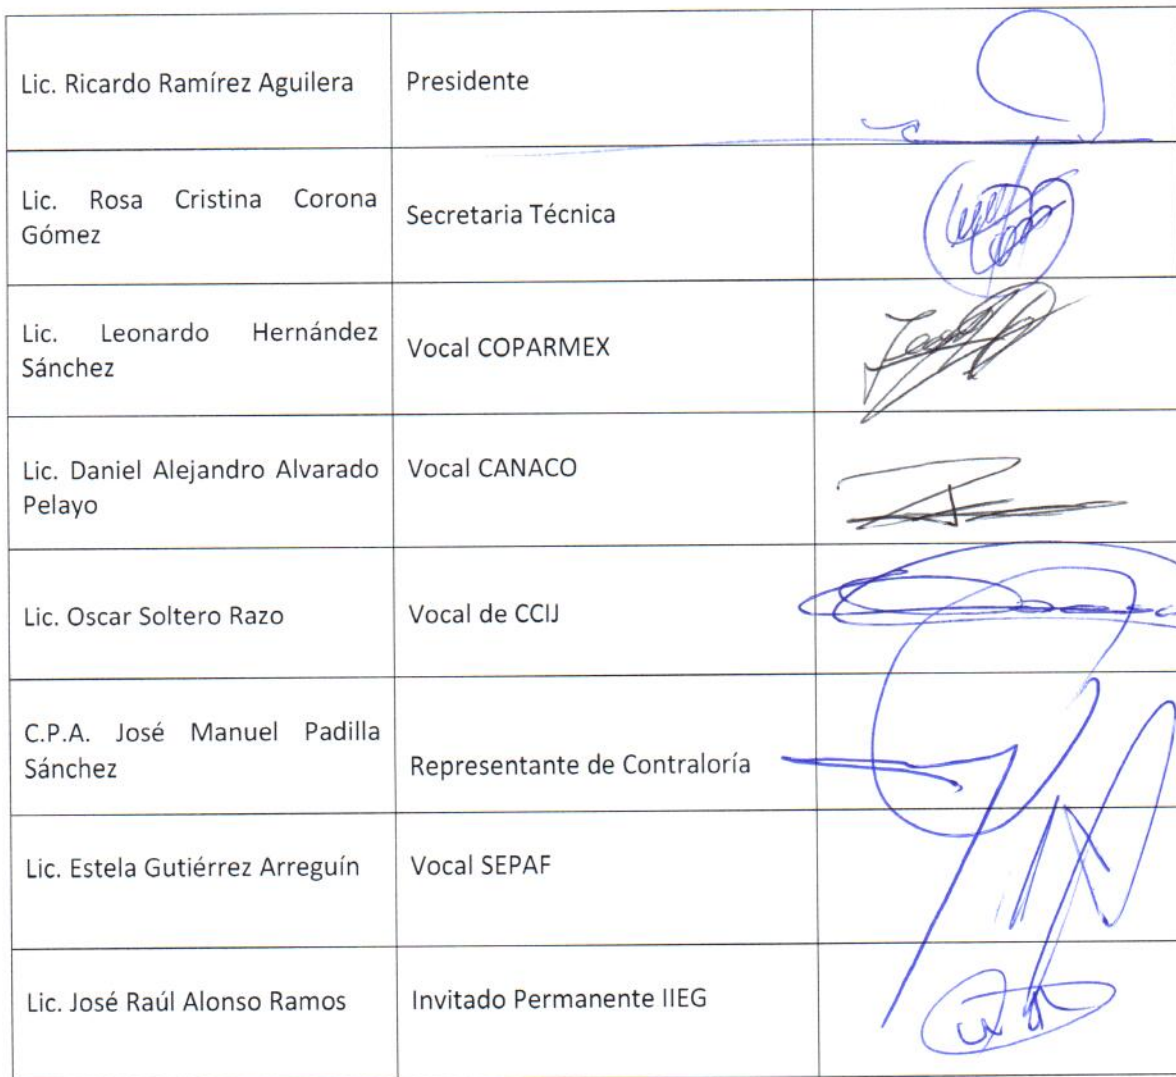 Lic. Ricardo Ramírez Aguilera
Presidente
Lic. Rosa Cristina Corona
Gómez
Secretaria Técnica
Lic. Leonardo Hernández
Sánchez
Vocal COPARMEX
Lic. Daniel Alejandro Alvarado
Pelayo
Vocal CANACO
Lic. Oscar Soltero Razo
Vocal de CCIJ
C.P.A. José Manuel Padilla
Sánchez
Representante de Contraloría
Lic. Estela Gutiérrez Arreguín
Vocal SEPAF
Lic. José Raúl Alonso Ramos
Invitado Permanente IIEG